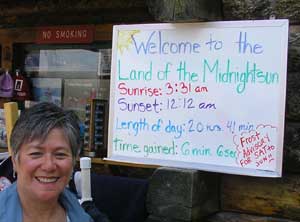 NO SMOKING
Welcome to the
Land of the Midnightsun
Sunrise: 3:31 am
Sunset: 12:12 am
Length of day: 20 hrs. 41 min.
time gained: 6 min. 6 sec
Frost
Advisory
FOR SAT to
SUN!!